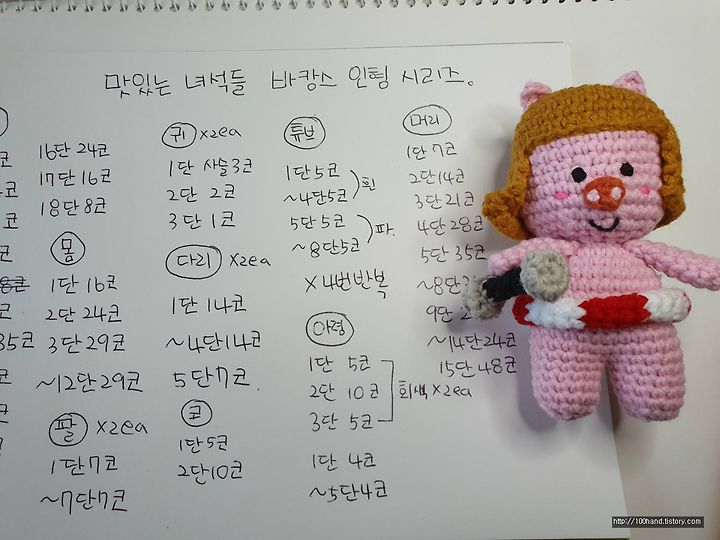 맛있는 녀석들 바캉스 인형 시리즈。
16단 24코
17단 16코
18단 8코
몸
1단 16코
2단 24코
3단 29코
~12단 29코
팔 x2ea
1단 7코
~7단 7코
귀 x2ea
1단 사슬 3코
2단 2코
3단 1코
다리 x2ea
1단 14코
~4단 14코
5단 7코.
코
1단 5코
2단 10코
튜브
1단 5코
~4단 5코 흰
5단 5코
~8단 5코 파.
x 4번 반복
아령
1단 5코
2단 10코
3단 5코
회색 x2ea
1단 4코
~5단 4코
머리
1단 7코
2단 14코
3단 21코
4단 28코
5단 35코
~8단 3
9단 2
~14단 24코
15단 48코
http://100hand.tistory.com